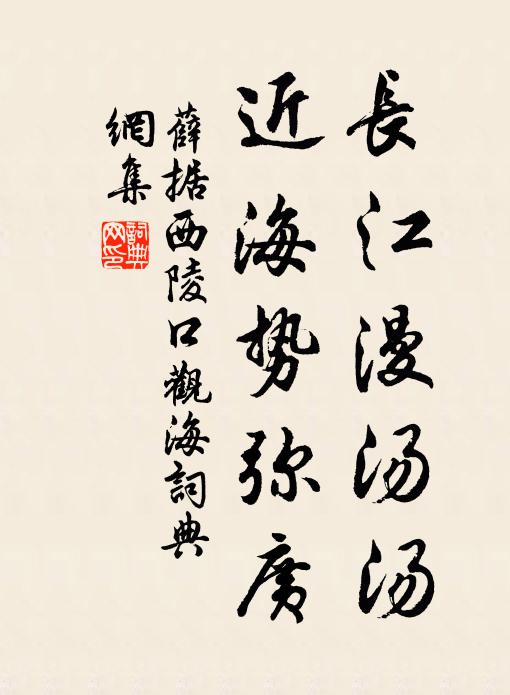 長江漫汤汤
近海势弥廣
薛据西陵口觀海詞典
網集
詞典
网印